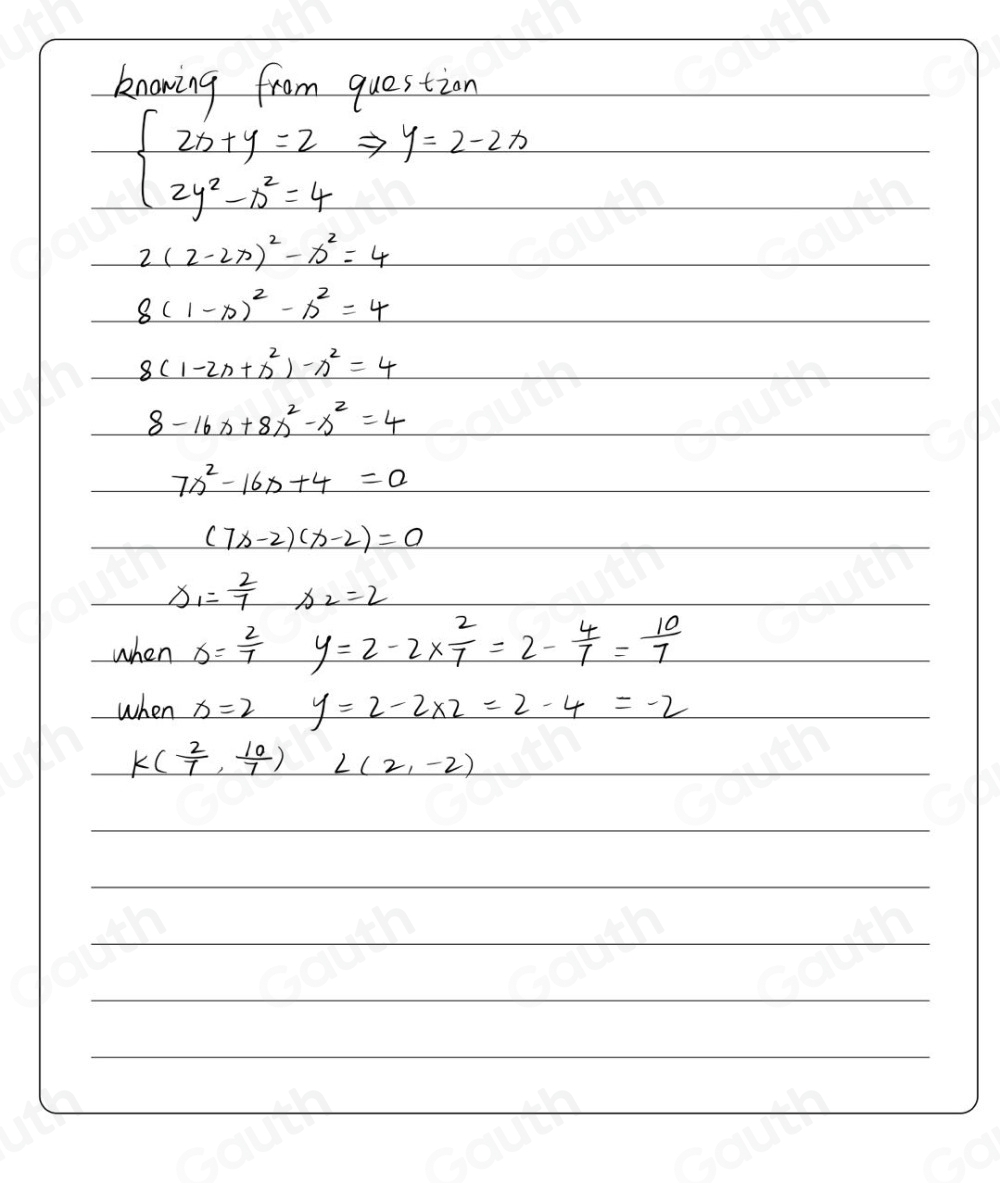 knowing from question
{ 2x+y=2 ⇒ y=2-2x
2y²-x²=4
2(2-2x)²-x²=4
8(1-x)²-x²=4
8(1-2x+x²)-x²=4
8-16x+8x²-x²=4
7x²-16x+4=0
(7x-2)(x-2)=0
x₁=2/7 x₂=2
when x=2/7 y=2-2×2/7=2-4/7=10/7
when x=2 y=2-2×2=2-4=-2
K(2/7, 10/7) L(2,-2)
Gauth